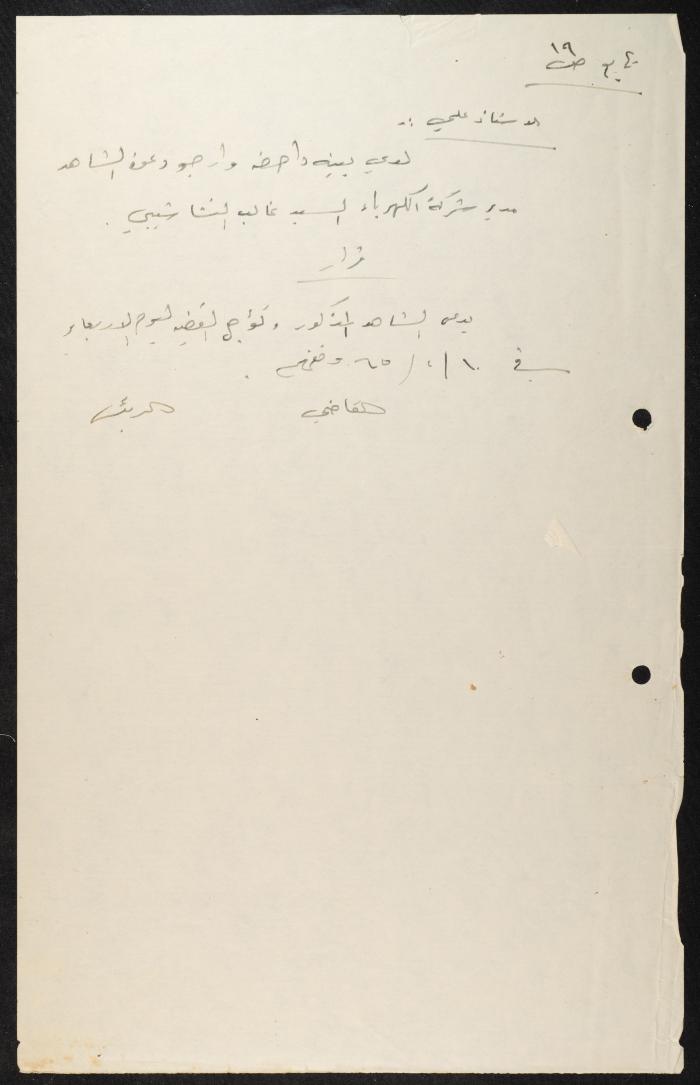 تابع ص ١٩
الاستاذ علي :-
لدي بينه داحضه وارجو دعوة الشاهد
مدير شركة الكهرباء السيد غالب النشاشيبي .
قرار
يدعى الشاهد المذكور وتؤجل القضيه ليوم الاربعاء
في ١٠ / / ٦٥ وفهم .
القاضي الرئيس